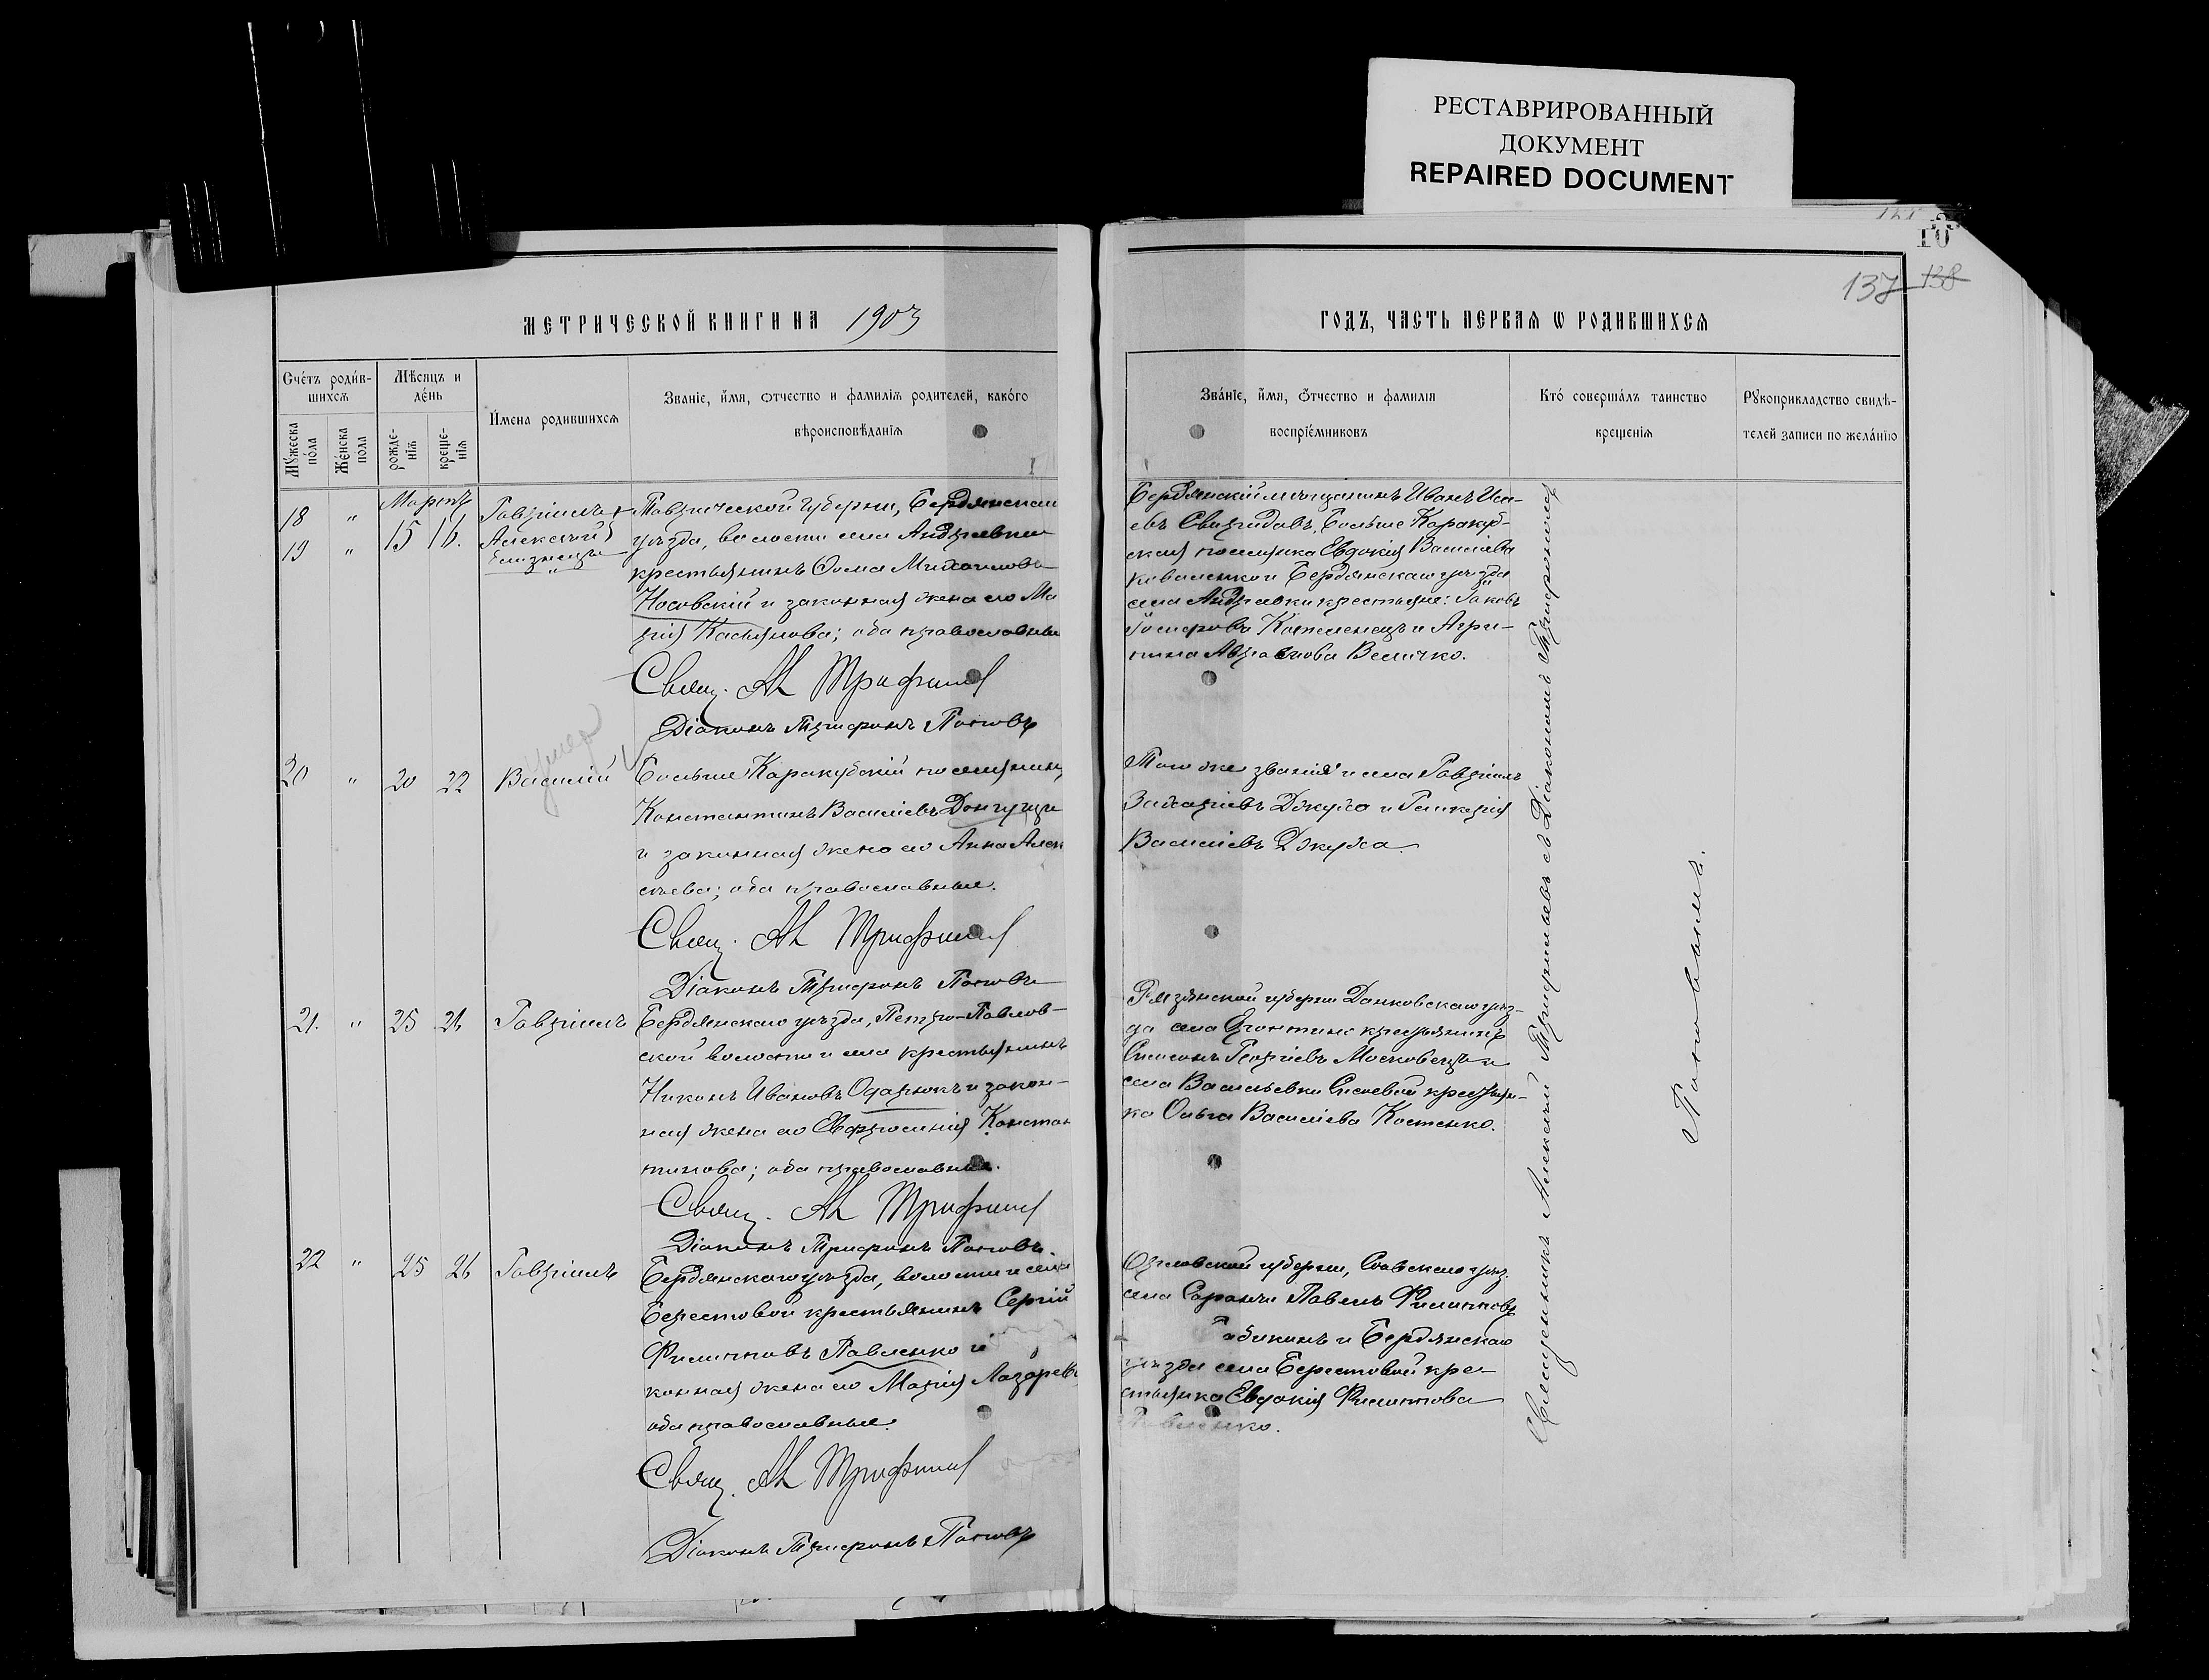 РЕСТАВРИРОВАННЫЙ
ДОКУМЕНТ
REPAIRED DOCUMENT
137 138
МЕТРИЧЕСКОЙ КНИГИ НА 1903
ГОДЪ, ЧАСТЬ ПЕРВАЯ Ѡ РОДИВШИХСЯ
Счетъ родив-
шихся
Мужеска
пола
Женска
пола
Мѣсяцъ и
день
рожде-
нія
креще-
нія
Имена родившихся
Званіе, имя, отчество и фамилія родителей, какого
вѣроисповѣданія
Званіе, имя, отчество и фамилія
воспріемниковъ
Кто совершалъ таинство
крещенія
Рукоприкладство свидѣ-
телей записи по желанію
Мартъ
18 " 15 16. Гавріилъ и
19 " Алексѣй
близнецы
Таврической губерніи, Бердянскаго
уѣзда, волости села Андреевки
крестьянинъ Ѳома Михаиловъ
Носовскій и законная жена его Ма
рія Касьянова; оба православные
Свящ. Ал Трифил
Діаконъ Трифонъ Поповъ
Бердянскій мещанинъ Иванъ Иса-
евъ Свиридовъ, Больше Каракуб-
ская поселянка Евдокія Василіева
Коваленко и Бердянскаго уѣзда
села Андреевки крестьяне: Іаковъ
Іосифовъ Котеленецъ и Агри-
пина Авраамова Величко.
20 " 20 22 Василій
умер
Больше Каракубскій поселянинъ
Константинъ Василіевъ Донгузци
и законная жена его Анна Алек
сѣева; оба православные.
Свящ. Ал Трифил
Діаконъ Трифонъ Поповъ
Того же званія и села Гавріилъ
Захаріевъ Джуха и Гликерія
Василіевъ Джуха.
21. " 25 26 Гавріилъ
Бердянскаго уѣзда, Петро-Павлов-
ской волости и села крестьянинъ
Никонъ Ивановъ Одарюкъ и закон-
ная жена его Евфросинія Констан
тинова; оба православные.
Свящ. Ал Трифил
Діаконъ Трифонъ Поповъ.
Рязанской губерніи Данковскаго уѣз-
да села крестьянинъ
Симеонъ Георгіевъ Московецъ и
села Васильевки крестьян-
ка Ольга Василіева Костенко.
22 " 25 26 Гавріилъ
Бердянскаго уѣзда, волости и села
Берестовой крестьянинъ Сергій
Филипповъ Павленко и
конная жена его Марія Лазарев
оба православные.
Свящ. Ал Трифил
Діаконъ Трифонъ Поповъ
Орловской губерніи, Сѣвскаго уѣз.
села Саранчи Павелъ Филипповъ
и Бердянскаго
уѣзда села Берестовой кре-
стьянка Евдокія Филиппова
Павленко.
Священникъ Алексій Трифильевъ съ Діакономъ Трифономъ
Поповымъ.